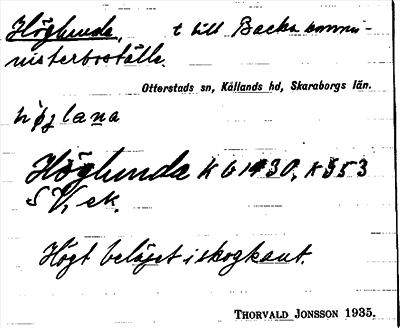 Höglunda, t till Backa kommi-
nisterboställe.
Otterstads sn, Kållands hd, Skaraborgs län.
Höglunda
Högt beläget i skogkant.
THORVALD JONSSON 1935.